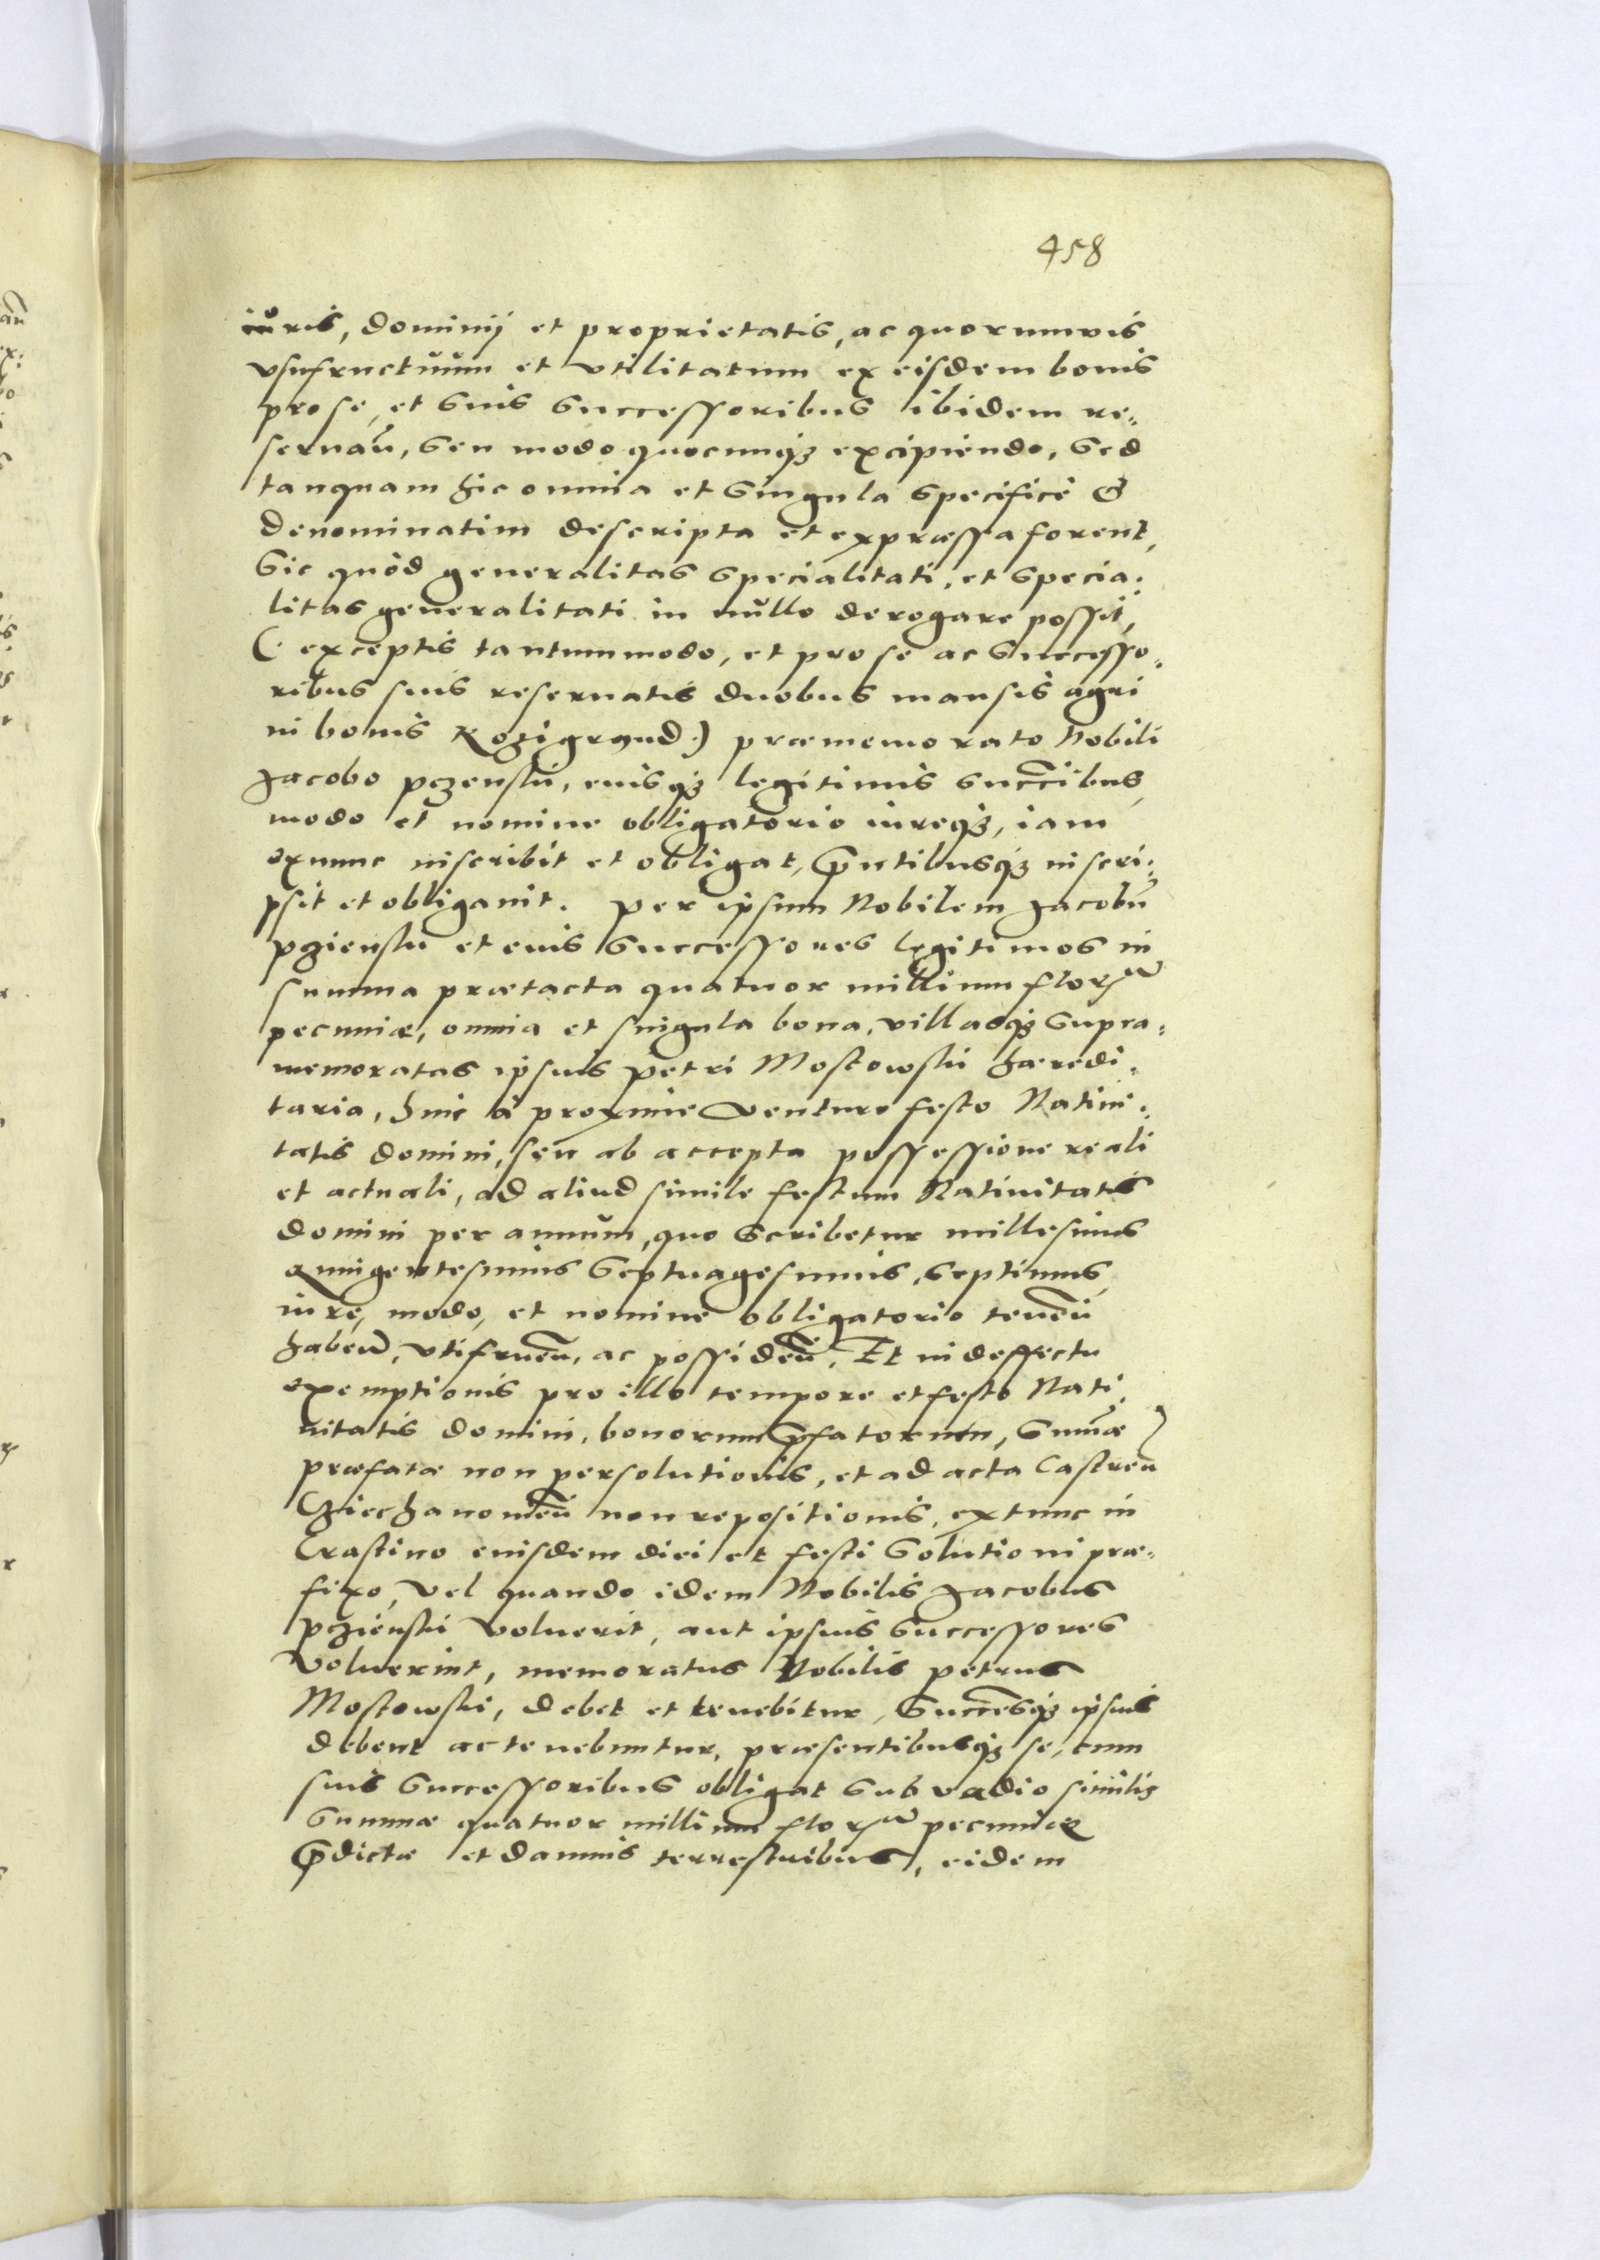 458
iuris, dominij et proprietatis, ac quorumvis
vsufructuum et vtilitatum ex eisdem bonis
pro se, et suis successoribus ibidem re=
seruan̄, seu modo quocunq₃ excipiendo, sed
tanquam hic omnia et singula specificè &
denominatim descripta et expressa forent,
sic quòd generalitas specialitati, et specia=
litas generalitati in nullo derogare possit,
(exceptis tantummodo, et pro se ac successo=
ribus suis reseruatis duobus mansis agri
in bonis Rozigrąnd) præmemorato Nobili
Jacobo Pczenski, eiusq₃ legitimis succ̄ibus
modo et nomine obligatorio iureq₃, iam
ex nunc inscribit et obligat, p̄ntibusq₃ inscri=
psit et obligauit. Per ipsum Nobilem Jacobū
Pczienski et eius successores legitimos in
summa prætacta quatuor millium florum
pecuniæ, omnia et singula bona, villasq₃ supra=
memoratas ipsius Petri Mostowski hæredi=
taria, hinc à proxime venturo festo Natiui=
tatis domini, seu ab accepta possessione reali
et actuali, ad aliud simile festum Natiuitatis
domini per annum, quo scribetur millesimus
quingentesimus septuagesimus septimus,
iure, modo, et nomine obligatorio tenen̄
haben̄, vtifruen̄, ac possiden̄. Et in deffectu
exemptionis pro illo tempore et festo Nati
uitatis domini, bonorum p̄fatorum, sum̄æ
præfatæ non persolutionis, et ad acta Castren̄
Cziechanowien̄ non repositionis, extunc in
Crastino eiusdem diei et festi solutioni præ=
fixo, vel quando idem Nobilis Jacobus
Pczienski voluerit, aut ipsius successores
voluerint, memoratus Nobilis Petrus
Mostowski, debet et tenebitur, succ̄esq₃ ipsius
debent ac tenebuntur, præsentibusq₃ se, cum
suis successoribus obligat sub vadio similis
summæ quatuor millium florum pecuniæ
p̄dictæ et damnis terrestribus, eidem